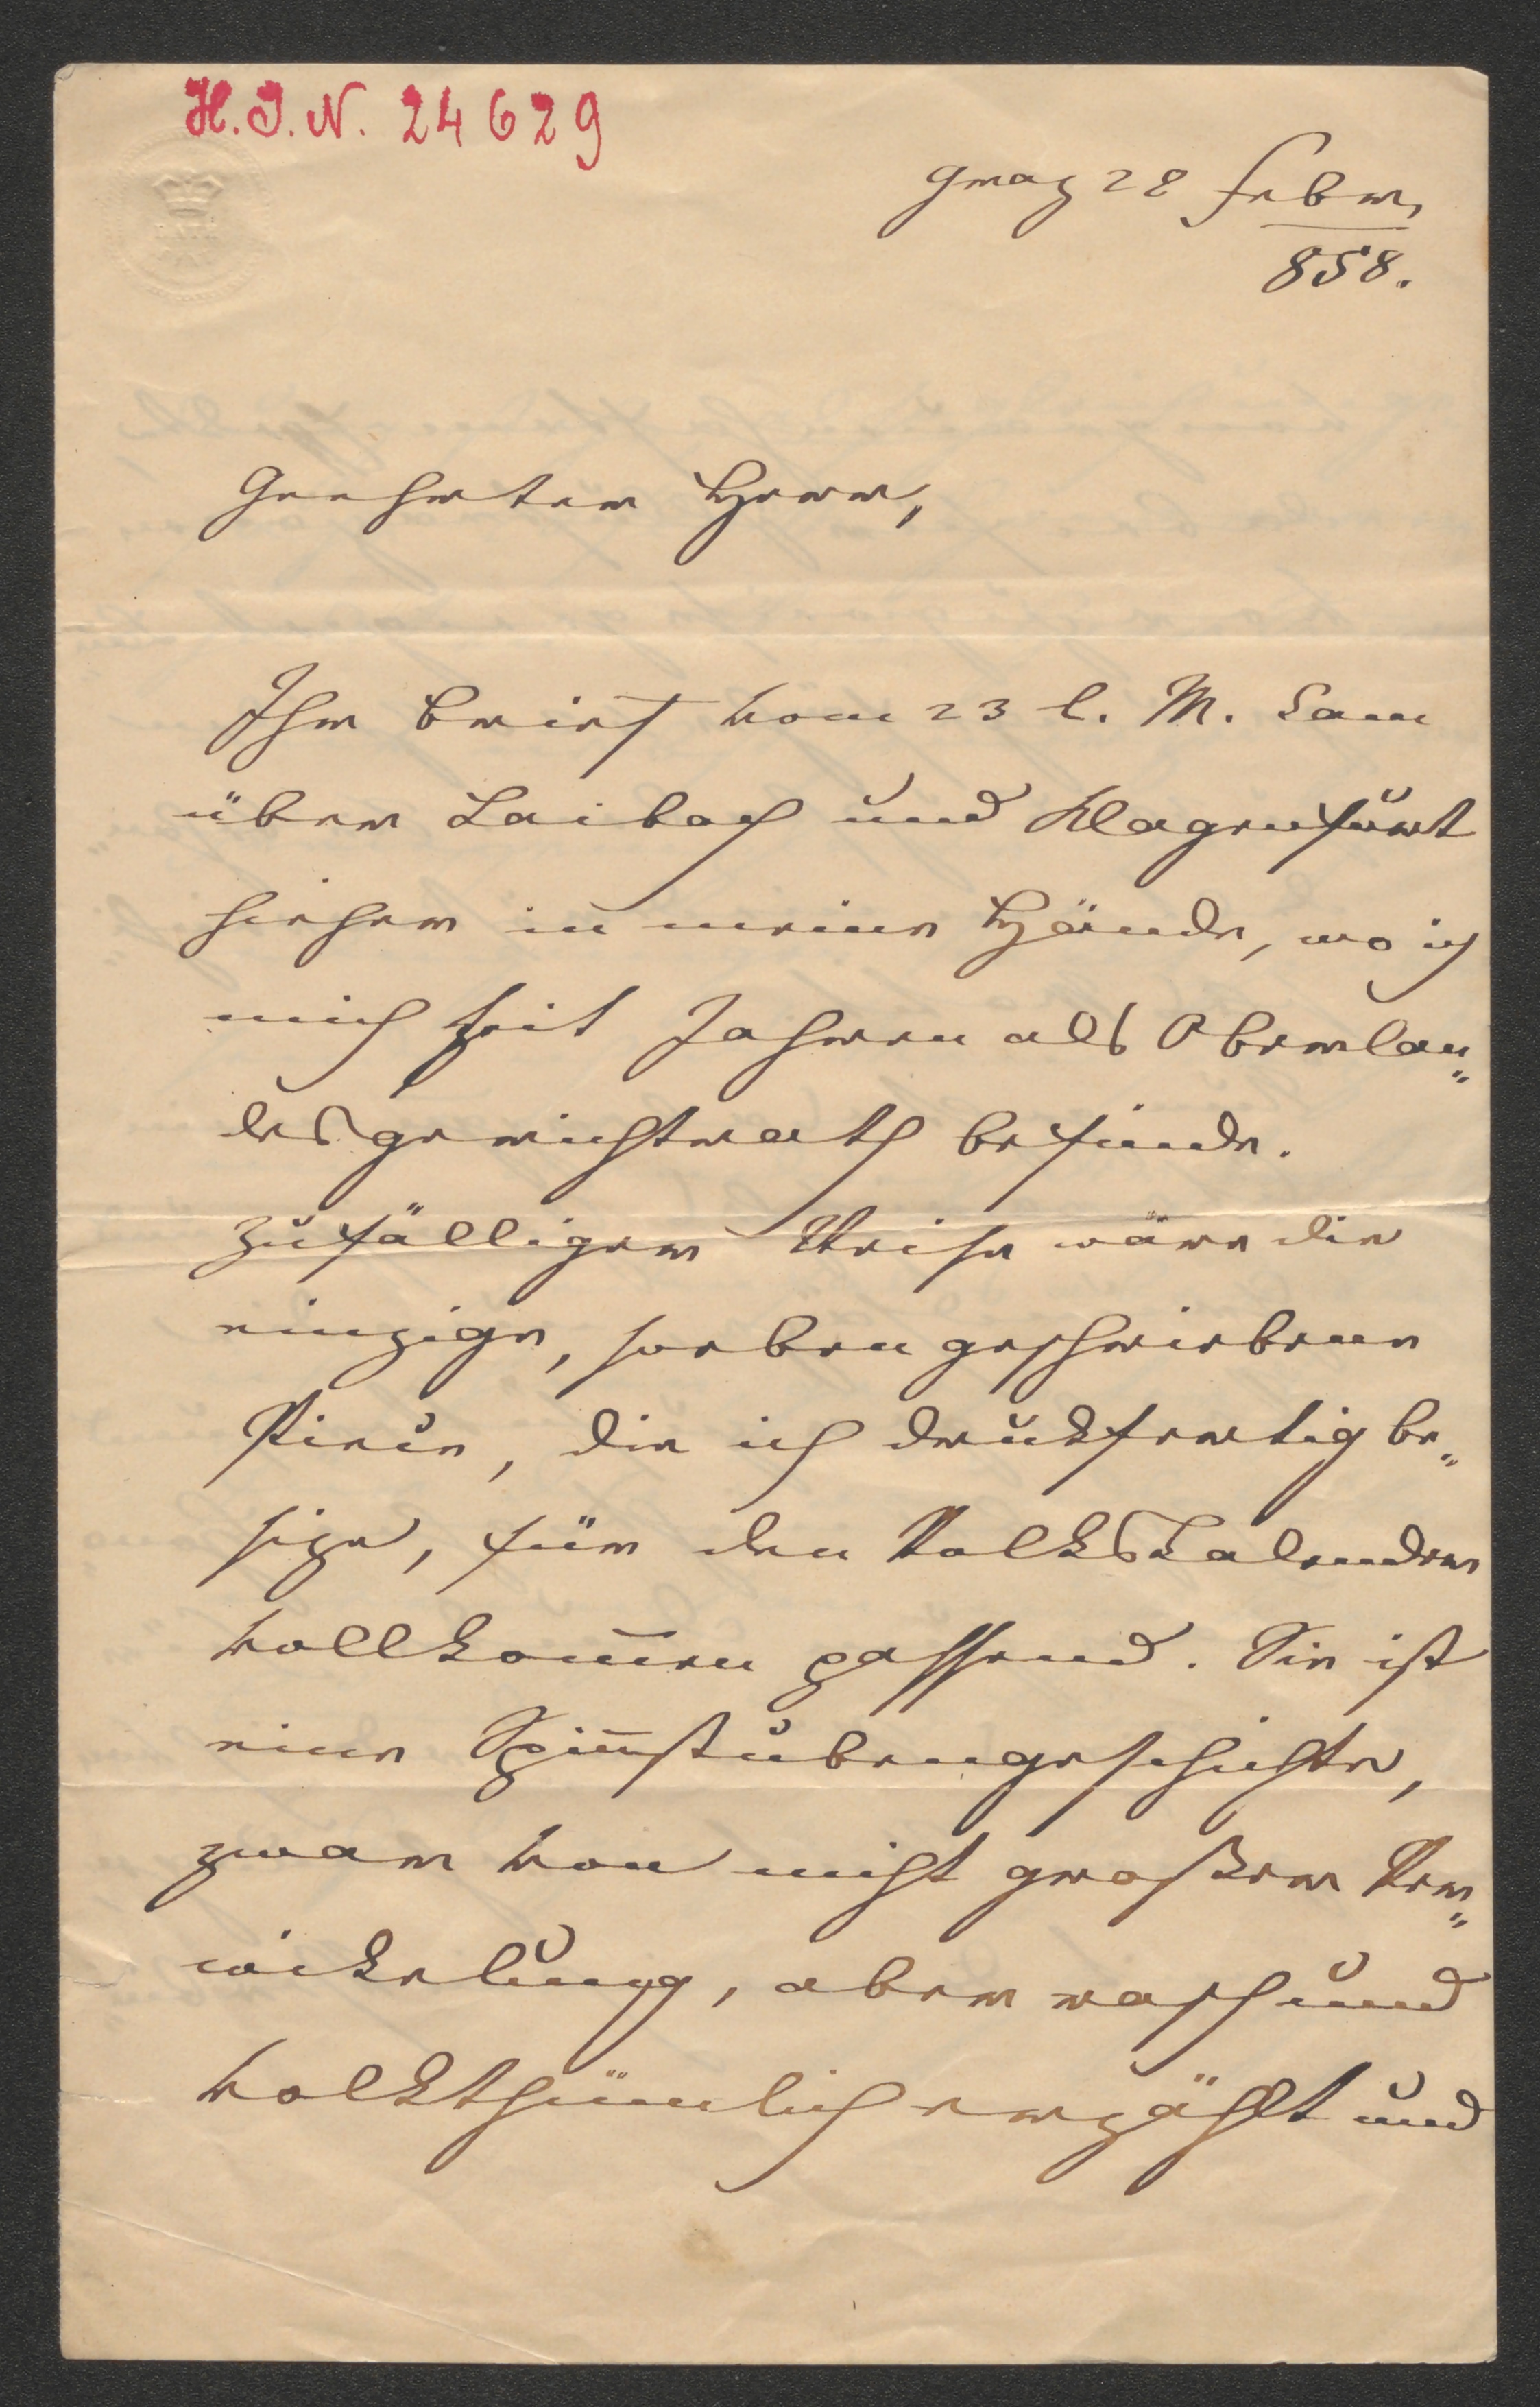 H. I. N. 24629
Graz 28 Febr.
858.
Geehrter Herr,
Ihr Brief vom 23 l. M. kam
über Laibach und Klagenfurt
hieher in meine Hände, wo ich
mich seit Jahren als Oberlan„
desgerichtsrath befinde.
Zufälliger Weise wäre die
einzige, soeben geschriebene
Pieçe, die ich druckfertig be„
size, für den Volkskalender
vollkom̄en passend. Sie ist
eine Spin̄stubengeschichte,
zwar von nicht großer Ver„
wickelung, aber rasch und
volksthümlich erzählt und